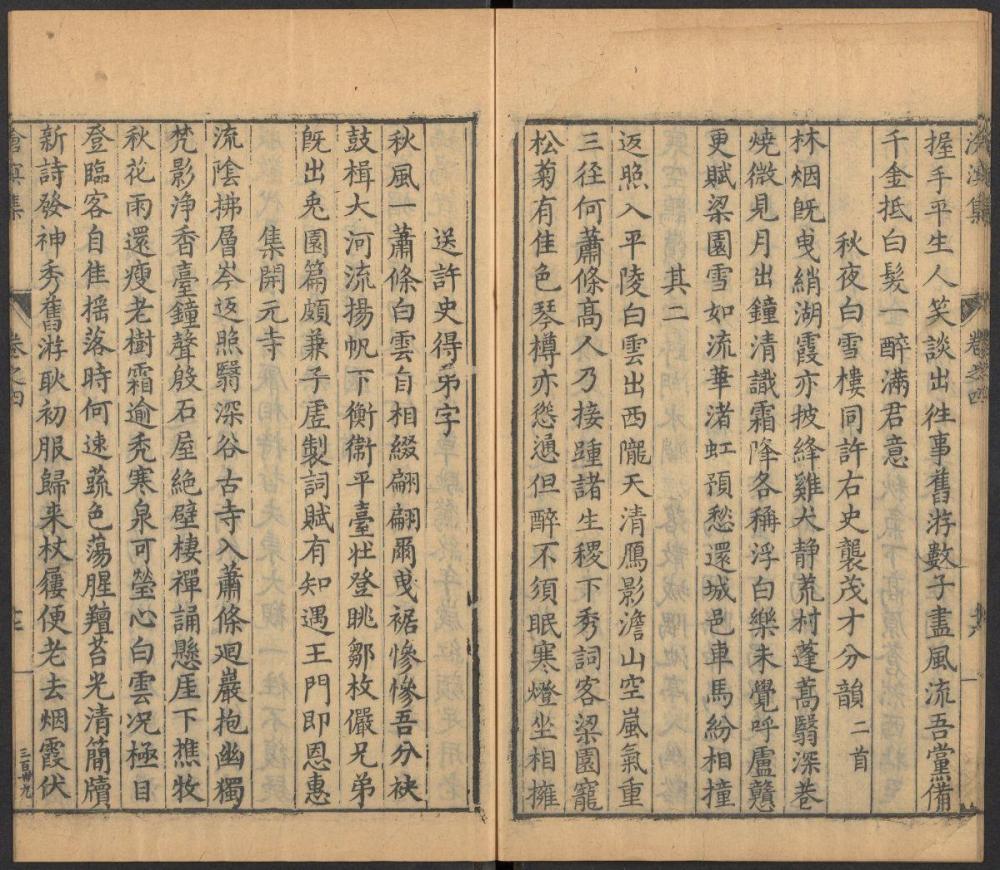 滄溟集
卷之四
握手平生人笑談出往事舊游數子盡風流吾黨備
千金抵白髮一醉滿君意
秋夜白雪樓同許右史襲茂才分韻二首
林烟旣曳綃湖霞亦披絳雞犬静荒村蓬蒿翳深巷
燒微見月出鐘清識霜降各稱浮白樂未覺呼盧戇
更賦梁園雪如流華渚虹預愁還城邑車馬紛相撞
其二
返照入平陵白雲出西隴天清鴈影澹山空嵐氣重
三徑何蕭條高人乃接踵諸生稷下秀詞客梁園寵
松菊有佳色琴樽亦慫慂但醉不須眠寒燈坐相擁
送許史得弟字
秋風一蕭條白雲自相綴翩翩爾曳裾慘慘吾分袂
鼓楫大河流揚帆下衡衞平臺壯登眺鄒枚儼兄弟
旣出兎園篇頗兼子虛製詞賦有知遇王門即恩惠
集開元寺
流陰拂層岑返照翳深谷古寺入蕭條廻巖抱幽獨
梵影淨香臺鐘聲殷石屋絕壁棲禪誦懸厓下樵牧
秋花雨還瘦老樹霜逾禿寒泉可瑩心白雲况極目
登臨客自佳摇落時何速蔬色蕩腥羶苔光清簡牘
新詩發神秀舊游耿初服歸来杖屨便老去烟霞伏
滄溟集
卷之四
三百卅九